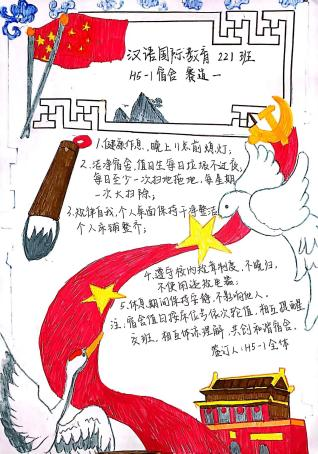 汉语国际教育 221班
H5-1宿舍
1.健康作息,晚上11点前熄灯;
2.洁净宿舍,值日生每日垃圾不过夜,
每日至少一次扫地拖地,每星期
一次大扫除;
3.规律自我,个人桌面保持干净整洁
个人床铺整齐;
4.遵守校内教育制度,不晚归,
不使用违规电器;
5.休息期间保持安静,不影响他人。
注:宿舍值日按床位号依次轮值,相互提醒
交班,相互体亦理解,共创和谐宿舍。
签订人:H5-1全体